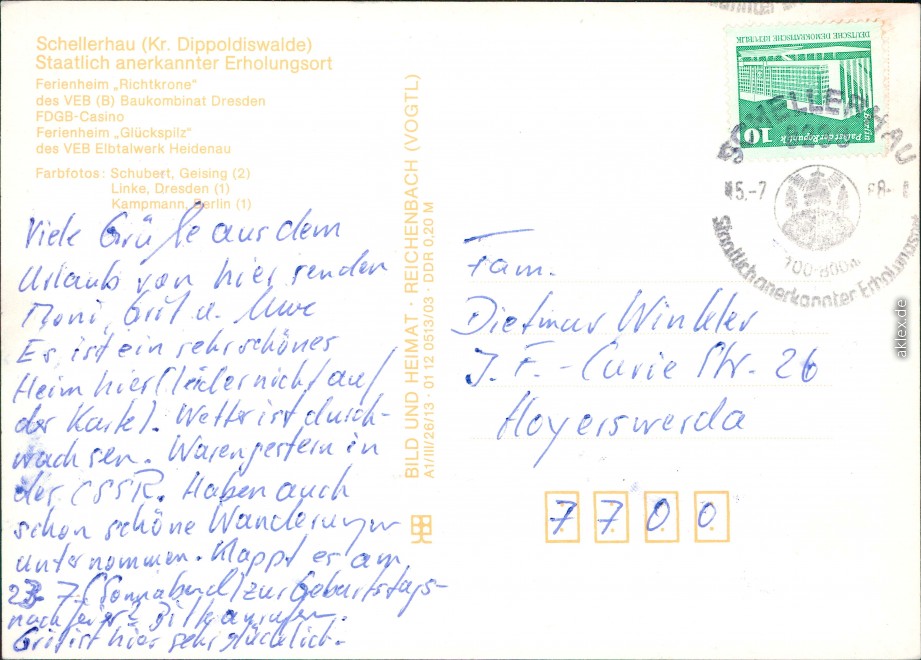 Schellerhau (Kr. Dippoldiswalde)
Staatlich anerkannter Erholungsort
Ferienheim „Richtkrone"
des VEB (B) Baukombinat Dresden
FDGB-Casino
Ferienheim „Glückspilz"
des VEB Elbtalwerk Heidenau
Farbfotos: Schubert, Geising (2)
Linke, Dresden (1)
Kampmann, Berlin (1)
Viele Grüße aus dem
Urlaub von hier senden
Moni, Grit u. Uwe
Es ist ein sehr schönes
Heim hier (leider nicht auf
der Karte). Wetter ist durch-
wachsen. Waren gestern in
der ČSSR. Haben auch
schon schöne Wanderungen
unternommen. Klappt es am
23. 7. (Sonnabend) zur Geburtstags-
nachfeier? Bitte anrufen.
Grit ist hier sehr glücklich.
BILD UND HEIMAT · REICHENBACH (VOGTL)
A1/III/26/13 · 01 12 0513/03 · DDR 0,20 M
DEUTSCHE DEMOKRATISCHE REPUBLIK
Berlin
10
SCHELLERHAU
15.-7
88-
700-800m
Staatlich anerkannter Erholungsort
Fam.
Dietmar Winkler
J. F. - Curie Str. 26
Hoyerswerda
7 7 0 0
aklex.de